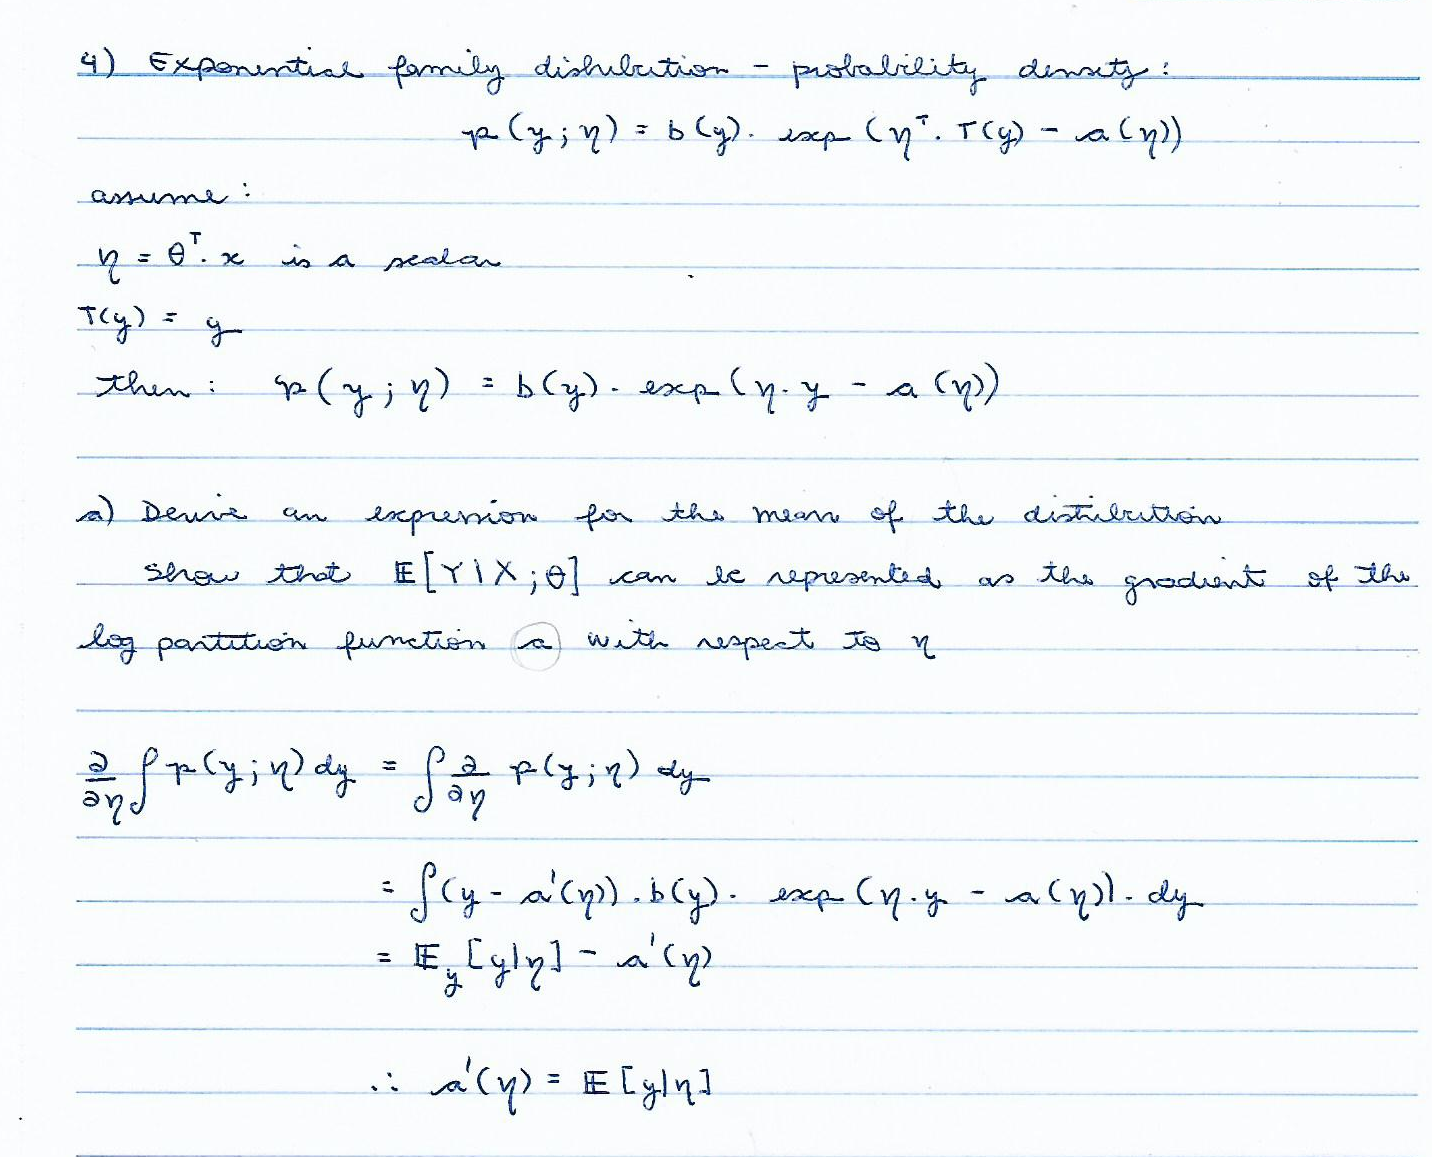 4) Exponential family distribution - probability density:
p(y; η) = b(y). exp(ηᵀ. T(y) - a(η))
assume:
η = θᵀ. x is a scalar
T(y) = y
then: p(y; η) = b(y). exp(η. y - a(η))
a) Derive an expression for the mean of the distribution
show that 𝔼[Y|X; θ] can be represented as the gradient of the
log partition function a with respect to η
∂/∂η ∫ p(y; η) dy = ∫ ∂/∂η p(y; η) dy
= ∫(y - a'(η)). b(y). exp(η. y - a(η)). dy
= 𝔼_y [y|η] - a'(η)
∴ a'(η) = 𝔼[y|η]